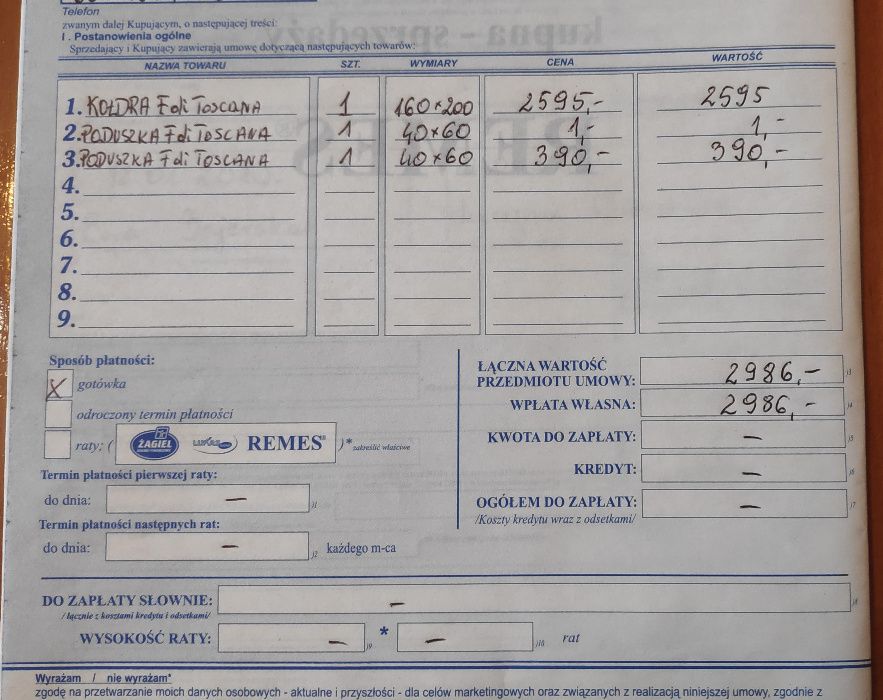 Telefon
zwanym dalej Kupującym, o następującej treści:
I . Postanowienia ogólne
Sprzedający i Kupujący zawierają umowę dotyczącą następujących towarów:
NAZWA TOWARU SZT. WYMIARY CENA WARTOŚĆ
1. KOŁDRA F di TOSCANA 1 160×200 2595,- 2595
2. PODUSZKA F di TOSCANA 1 40×60 1,- 1,-
3. PODUSZKA F di TOSCANA 1 40×60 390,- 390,-
4.
5.
6.
7.
8.
9.
Sposób płatności:
X gotówka
odroczony termin płatności
raty: ( ŻAGIEL LUKAS REMES )* zakreślić właściwe
Termin płatności pierwszej raty:
do dnia: – )1
Termin płatności następnych rat:
do dnia: – )2 każdego m-ca
ŁĄCZNA WARTOŚĆ
PRZEDMIOTU UMOWY: 2986,- )3
WPŁATA WŁASNA: 2986,- )4
KWOTA DO ZAPŁATY: – )5
KREDYT: – )6
OGÓŁEM DO ZAPŁATY: – )7
/Koszty kredytu wraz z odsetkami/
DO ZAPŁATY SŁOWNIE: – )8
/ łącznie z kosztami kredytu i odsetkami/
WYSOKOŚĆ RATY: – )9 * – )10 rat
Wyrażam / nie wyrażam*
zgodę na przetwarzanie moich danych osobowych - aktualne i przyszłości - dla celów marketingowych oraz związanych z realizacją niniejszej umowy, zgodnie z